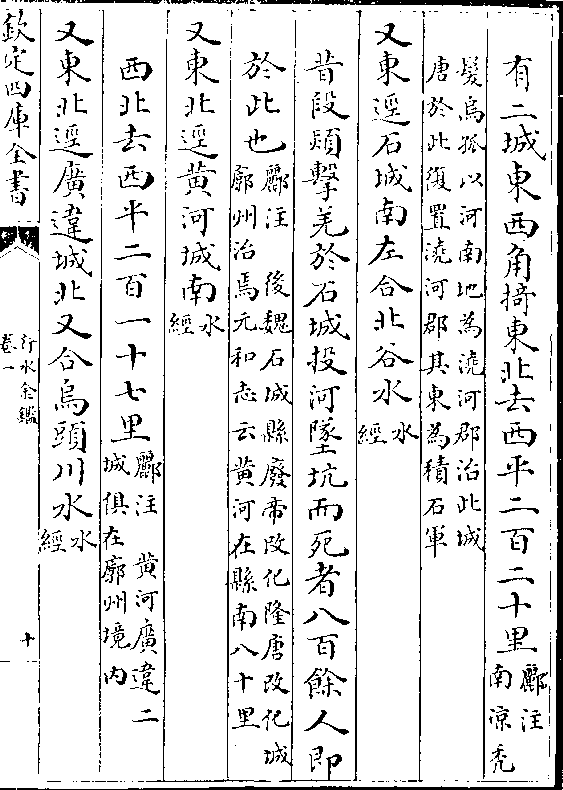 有二城東西角掎東北去西平二百二十里酈注南涼禿
髮烏孤以河南地為澆河郡治此城
唐於此復置澆河郡其東為積石軍
又東逕石城南左合北谷水水經
昔段熲擊羌於石城投河墜坑而死者八百餘人即
於此也酈注 後魏石城縣廢帝改化隆唐改化城
廓州治焉元和志云黄河在縣南八十里
又東北逕黄河城南水經
西北去西平二百一十七里酈注 黄河廣違二
城俱在廓州境内
又東北逕廣違城北又合烏頭川水水經
欽定四庫全書
行水金鑑
卷一
十